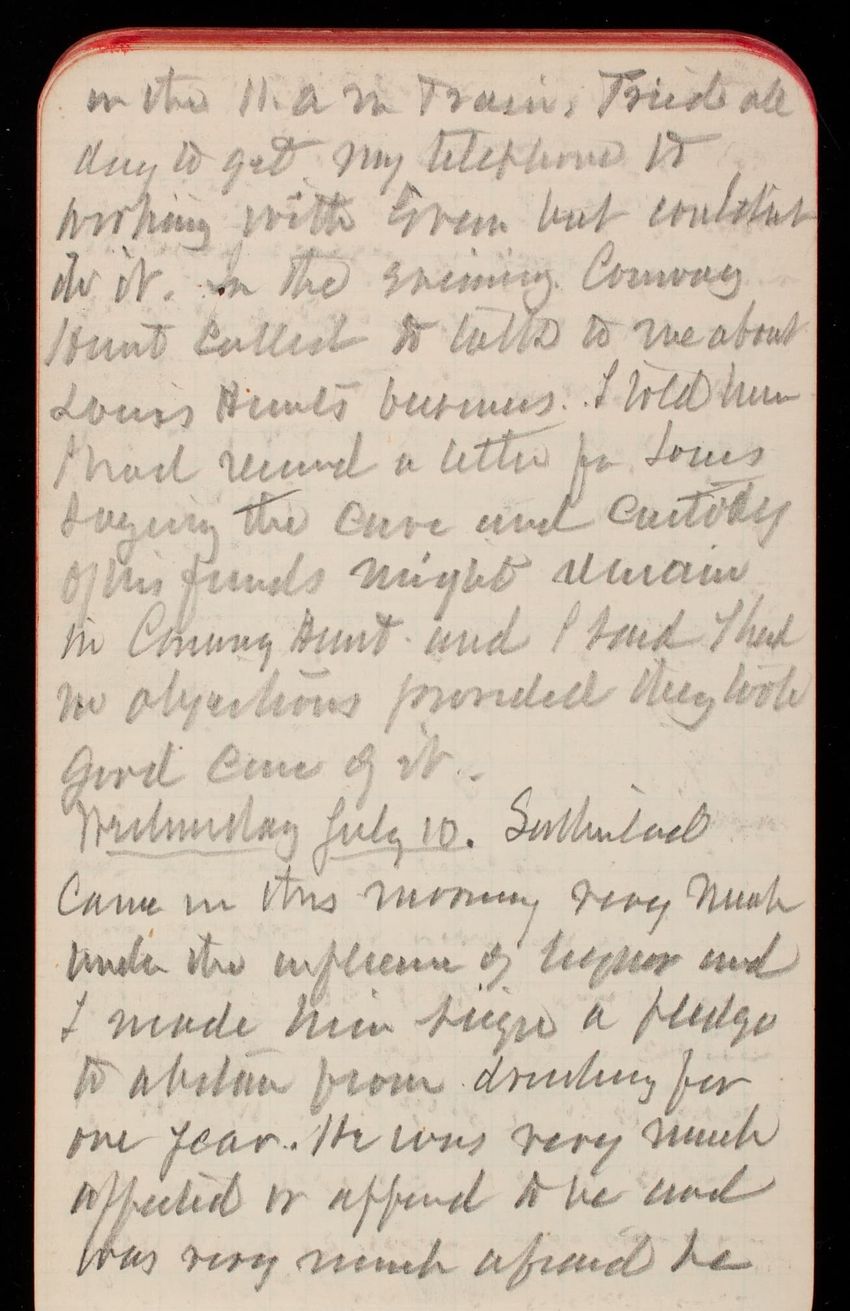 in the 11. a m Train, Tried all
day to get my telephone to
working with Green but couldnt
do it. In the evening Conway
Hunt called to talk to me about
Louis Hunts business. I told him
I had received a letter fr Louis
saying the care and custody
of his funds might remain
in Conway Hunt and I said I had
no objections provided they took
good care of it.
Wednesday July 10. Sutherland
Came in this morning very much
under the influence of liquor and
I made him signe a pledge
to abstain from drinking for
one year. He was very much
affected or appeared to be and
was very much afraid he